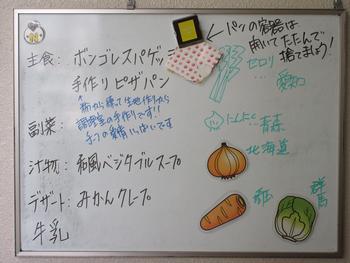 主食: ボンゴレスパゲッ
手作りピザパン
粉から練って生地作りから
調理室の手作りです!!
副菜:
汁物: 和風ベジタブルスープ
デザート: みかんクレープ
牛乳
パンの容器は
開いてたたんで
捨てましょう!
セロリ
愛知
にんにく
青森
北海道
群馬